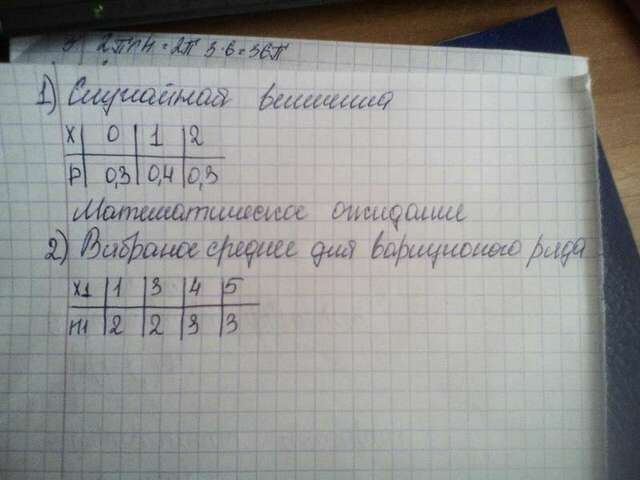 2πrh = 2π 3·6 = 36π
1) Случайная величина
X | 0 | 1 | 2
P | 0,3 | 0,4 | 0,3
Математическое ожидание
2) Выбраное среднее для вариционого ряда
X1 | 1 | 3 | 4 | 5
m1 | 2 | 2 | 3 | 3